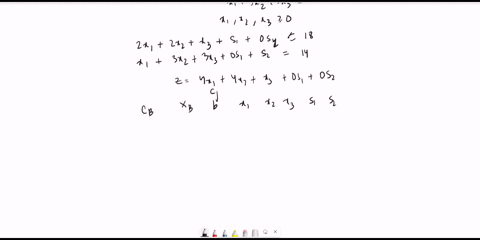 x₁, x₂, x₃ ≥ 0
2x₁ + 2x₂ + x₃ + S₁ + 0S₂ = 18
x₁ + 3x₂ + 3x₃ + 0S₁ + S₂ = 14
z = 4x₁ + 4x₂ + x₃ + 0S₁ + 0S₂
Cj
CB XB b x₁ x₂ x₃ S₁ S₂